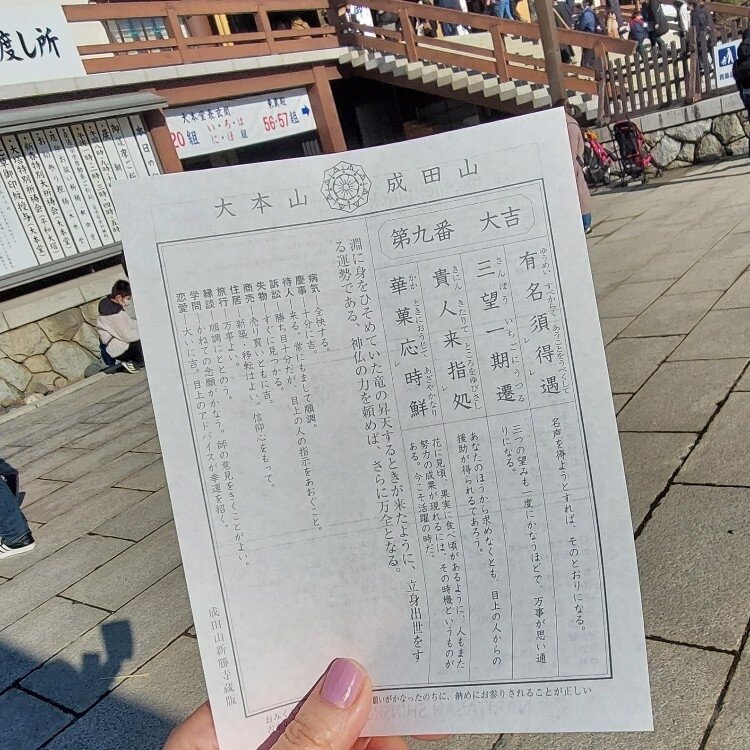 渡し所
大本堂表玄関
20組
い・ろ・は
に・ほ 組
56・57組
大本山 成田山
第九番 大吉
ゆうめい、すべからくあうことをうべくして
有名須得遇
名声を得ようとすれば、そのとおりになる。
さんぼう いちごにうつる
三望一期遷
三つの望みも一度にかなうほどで、万事が思い通
りになる。
きにん きたりて ところをゆびさし
貴人来指処
あなたのほうから求めなくとも、目上の人からの
援助が得られるであろう。
かか ときにおうじて あざやかなり
華菓応時鮮
花に見頃、果実に食べ頃があるように、人もまた
努力の成果が現れるには、その時機というものが
ある。今こそ活躍の時だ。
淵に身をひそめていた竜の昇天するときが来たように、立身出世をす
る運勢である、神仏の力を頼めば、さらに万全となる。
病気─全快する。
慶事─十分に吉。
待人─来る。常にもまして順調。
訴訟─勝ち目十分だが、目上の人の指示をあおぐこと。
失物─すぐに見つかる。
商売─売り買いともに吉。
住居─新築・移転はよい。信仰心をもって。
旅行─万事よい。
縁談─順調にととのう。
学問─かねての念願がかなう。師の意見をきくことがよい。
恋愛─大いに吉。目上のアドバイスが幸運を招く。
成田山新勝寺蔵版
願いがかなったのちに、納めにお参りされることが正しい